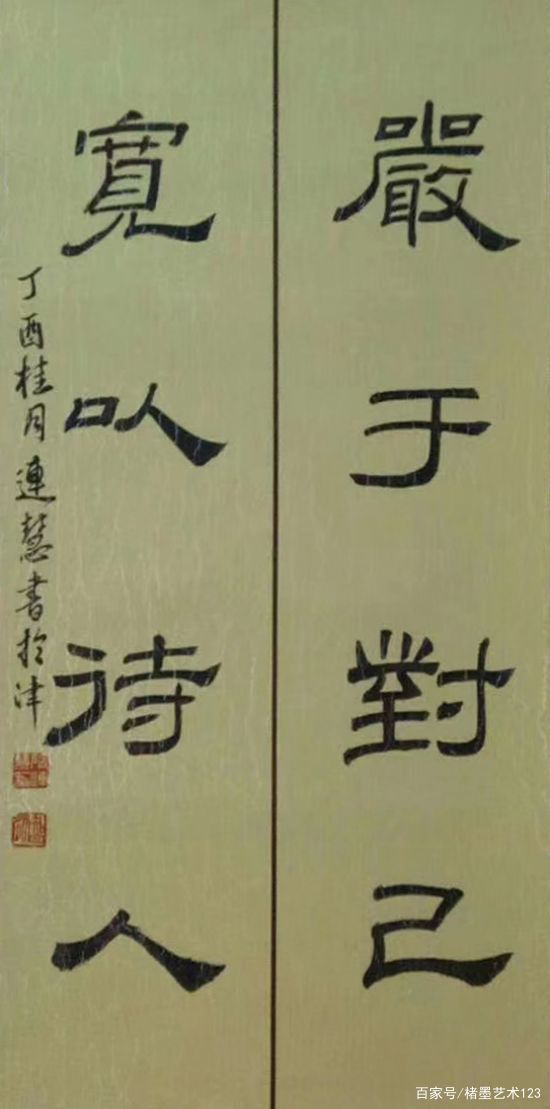 嚴于對己
寬以待人
丁酉桂月連慧書於津
百家号/楮墨艺术123